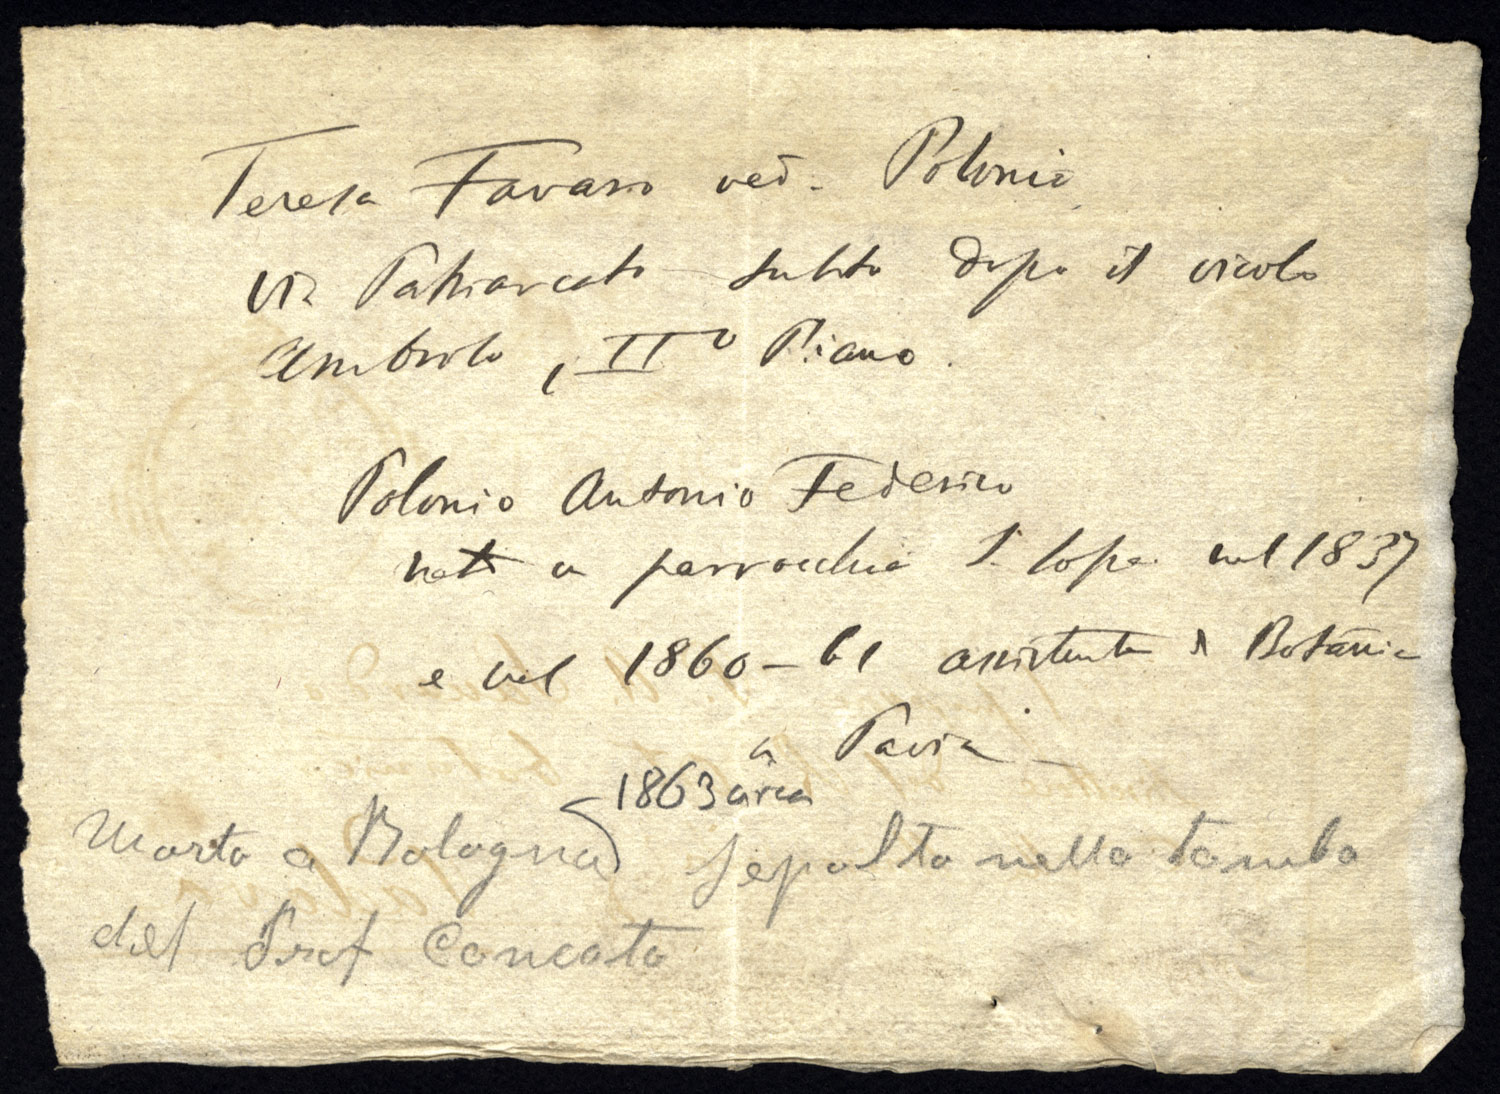 Teresa Favaro ved. Polonio
via Patriarcato subito dopo il vicolo
Ambrolo, IIº Piano.
Polonio Antonio Federico
nato a parrocchia S. nel 1837
e nel 1860-61 assistente di Botanica
a Pavia
1863 circa
Morto a Bologna Sepolto nella tomba
del Prof Concato